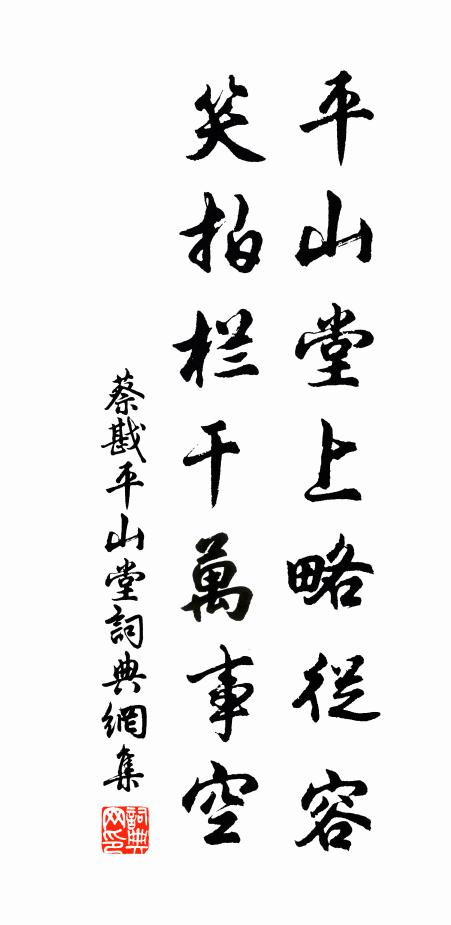 平山堂上略從容
笑拍栏干萬事空
蔡戡平山堂詞典網集
詞典网印